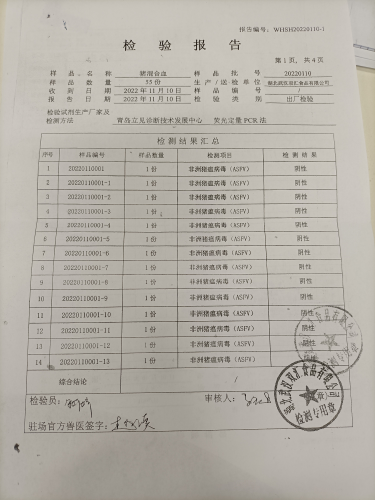 报告编号：WHSH20220110-1
检验报告
第1页，共4页
样品名称 猪混合血 样品批号 20220110
样品数量 55份 生产/送检单位 湖北武汉双汇食品有限公司
收样日期 2022年11月10日 样品编号 /
报告日期 2022年11月10日 检验类别 出厂检验
检验试剂生产厂家及
检测方法 青岛立见诊断技术发展中心 荧光定量PCR法
检测结果汇总
序号 样品编号 样品数量 检测项目 检测结果
1 20220110001 1份 非洲猪瘟病毒（ASFV） 阴性
2 20220110001-1 1份 非洲猪瘟病毒（ASFV） 阴性
3 20220110001-2 1份 非洲猪瘟病毒（ASFV） 阴性
4 20220110001-3 1份 非洲猪瘟病毒（ASFV） 阴性
5 20220110001-4 1份 非洲猪瘟病毒（ASFV） 阴性
6 20220110001-5 1份 非洲猪瘟病毒（ASFV） 阴性
7 20220110001-6 1份 非洲猪瘟病毒（ASFV） 阴性
8 20220110001-7 1份 非洲猪瘟病毒（ASFV） 阴性
9 20220110001-8 1份 非洲猪瘟病毒（ASFV） 阴性
10 20220110001-9 1份 非洲猪瘟病毒（ASFV） 阴性
11 20220110001-10 1份 非洲猪瘟病毒（ASFV） 阴性
12 20220110001-11 1份 非洲猪瘟病毒（ASFV） 阴性
13 20220110001-12 1份 非洲猪瘟病毒（ASFV） 阴性
14 20220110001-13 1份 非洲猪瘟病毒（ASFV） 阴性
综合结论 /
检验员： 审核人： （章）
驻场官方兽医签字：
湖北武汉双汇食品有限公司
检测专用章